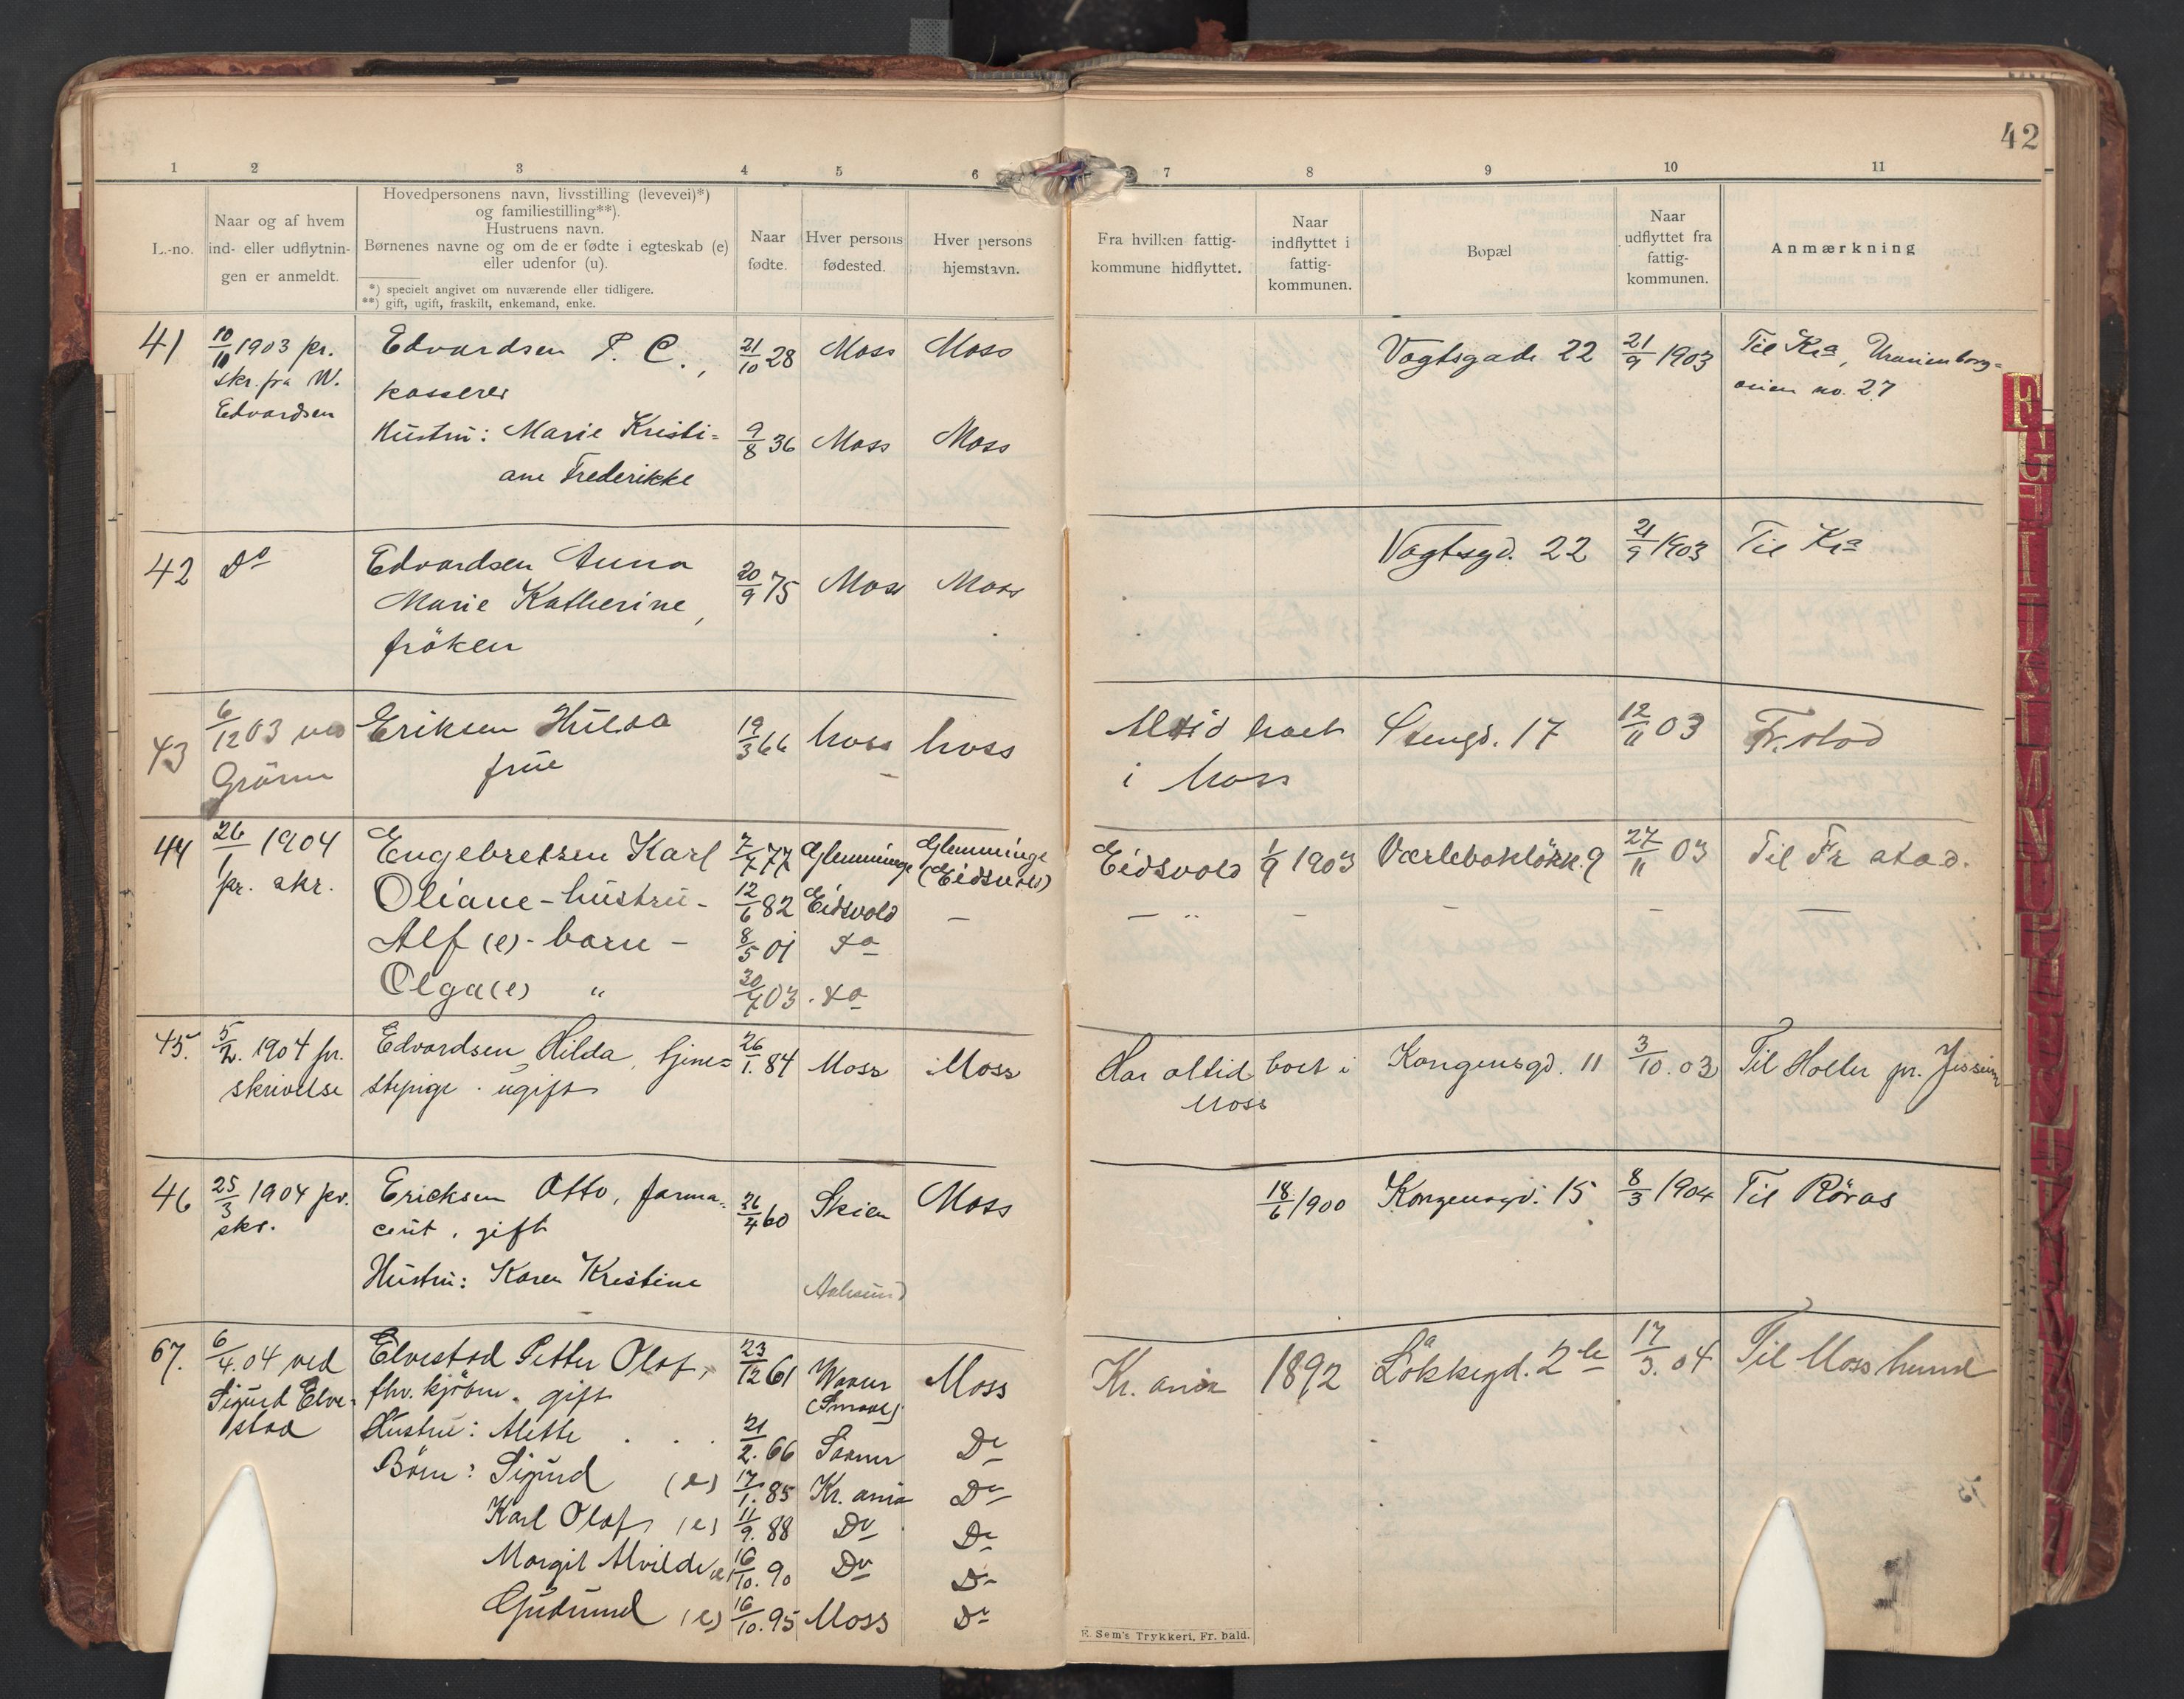 42
1 2 3 4 5 6 7 8 9 10 11
L.-no.
Naar og af hvem
ind- eller udflytnin-
gen er anmeldt.
Hovedpersonens navn, livsstilling (levevei)*)
og familiestilling**).
Hustruens navn.
Børnenes navne og om de er fødte i egteskab (e)
eller udenfor (u).
*) specielt angivet om nuværende eller tidligere.
**) gift, ugift, fraskilt, enkemand, enke.
Naar
fødte.
Hver persons
fødested.
Hver persons
hjemstavn.
Fra hvilken fattig-
kommune hidflyttet.
Naar
indflyttet i
fattig-
kommunen.
Bopæl
Naar
udflyttet fra
fattig-
kommunen.
Anmærkning
41 10/10 1903 pr. Edvardsen P. C., 21/10 28 Moss Moss Vogtsgade 22 21/9 1903 Til Kra, Uranienborg-
skr. fra W. kasserer veien no. 27
Edvardsen Hustru: Marie Kristi= 9/8 36 Moss Moss
ane Frederikke
42 Do Edvardsen Anna 20/9 75 Moss Moss Vogtsgd. 22 21/9 1903 Til Kra
Marie Katherine,
fröken
43 6/12 03 ved Eriksen Hilda 19/3 66 Moss Moss Altid boet Stengd. 17 12/11 03 Fr.stad
frue i Moss
44 26/1 1904 Engebretsen Karl 7/7 77 Glemminge Glemminge Eidsvold 1/9 1903 9 27/11 03 Til Fr stad.
pr. skr. (Eidsvold)
Oliane - hustru - 12/6 82 Eidsvold — — " — — — —
Alf (e) - barn - 8/5 01 do
Olga (e) " 30/7 03. do
45. 5/2. 1904 pr. Edvardsen, Hilda, tjene= 26/1. 84 Moss Moss Har altid boet i Kongensgd. 11 3/10. 03 Til Holter pr. Jessheim
skrivelse stepige. ugift Moss
46 25/3 1904 pr. Ericksen Otto, farma- 26/4 60 Skien Moss 18/6 1900 Kongensgd. 15 8/3 1904 Til Röros
skr. ceut, gift
Hustru: Karen Kristine Aalesund
67. 6/4. 04 ved Elvestad Petter Olaf, 23/12 61 Moss Kr. ania 1892 Løkkegd. 2 17/3. 04 Til Moss
Sigurd Elve- fhv. kjöbm. gift (Smaal)
stad Hustru: Alette . . . 21/2. 66 Do
Börn: Sigurd (e) 17/1. 85 Kr. ania Do
Karl Olaf (e) 11/9. 88 Do Do
Margit Alvilde (e) 16/10. 90 Do Do
Gudrund (e) 16/10. 95 Moss Do
E. Sem's Trykkeri, Fr. hald.